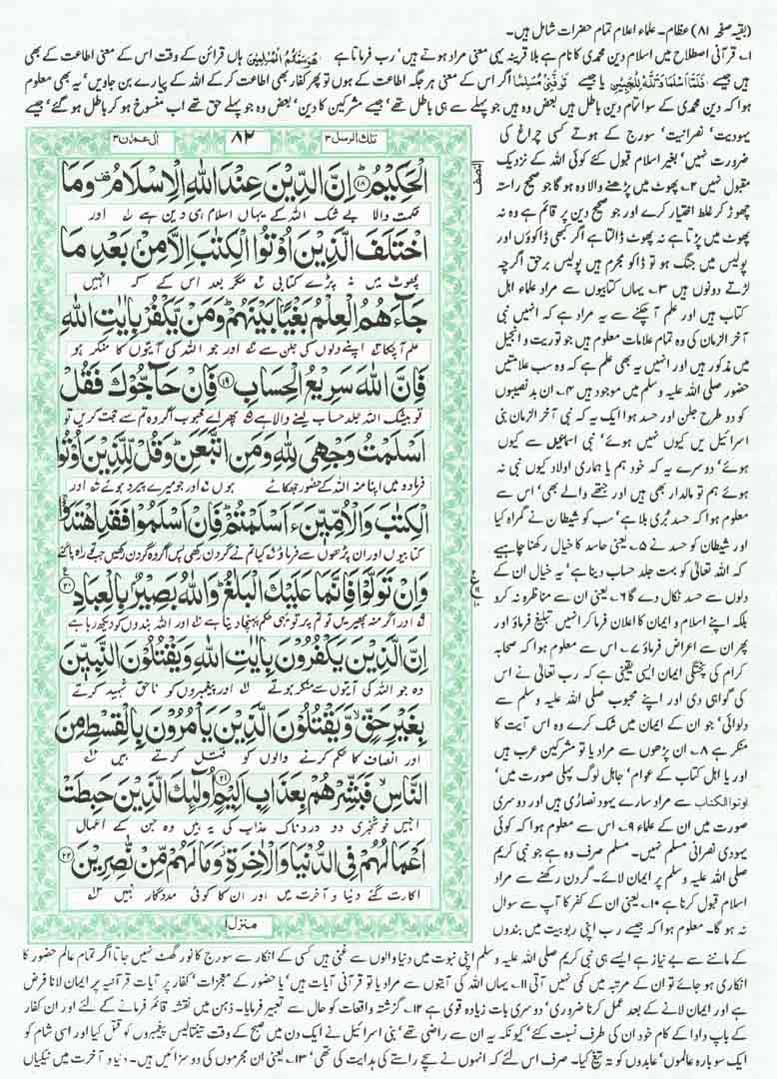 (بقیہ صفحہ ۸۱) عظام۔ علماء اعلام تمام حضرات شامل ہیں۔
۱؎ قرآنی اصطلاح میں اسلام دین محمدی کا نام ہے بلا قرینہ یہی معنی مراد ہوتے ہیں' رب فرماتا ہے ہاں قرائن کے وقت اس کے معنی اطاعت کے بھی
ہیں جیسے فَلَمَّا أَسْلَمَا وَتَلَّهُ لِلْجَبِينِ یا جیسے تَوَفَّنِي مُسْلِمًا اگر اس کے معنی ہر جگہ اطاعت کے ہوں تو پھر کفار بھی اطاعت کر کے اللہ کے پیارے بن جاویں' یہ بھی معلوم
ہوا کہ دین محمدی کے سوا تمام دین باطل ہیں بعض وہ ہیں جو پہلے سے ہی باطل تھے' جیسے مشرکین کا دین' بعض وہ جو پہلے حق تھے اب منسوخ ہو کر باطل ہو گئے' جیسے
یہودیت' نصرانیت' سورج کے ہوتے کسی چراغ کی
ضرورت نہیں' بغیر اسلام قبول کئے کوئی اللہ کے نزدیک
مقبول نہیں ۲؎ پھوٹ میں پڑھنے والا وہ ہو گا جو صحیح راستہ
چھوڑ کر غلط اختیار کرے اور جو صحیح دین پر قائم ہے وہ نہ
پھوٹ میں پڑتا ہے نہ پھوٹ ڈالتا ہے اگر کبھی ڈاکوؤں اور
پولیس میں جنگ ہو تو ڈاکو مجرم ہیں پولیس برحق اگرچہ
لڑتے دونوں ہیں ۳؎ یہاں کتابیوں سے مراد علماء اہل
کتاب ہیں اور علم آ چکنے سے یہ مراد ہے کہ انہیں نبی
آخر الزمان کی وہ تمام علامات معلوم ہیں جو توریت و انجیل
میں مذکور ہیں اور انہیں یہ بھی علم ہے کہ وہ سب علامتیں
حضور صلی اللہ علیہ و سلم میں موجود ہیں ۴؎ ان بدنصیبوں
کو دو طرح جلن اور حسد ہوا ایک یہ کہ نبی آخر الزمان بنی
اسرائیل میں کیوں نہیں ہوئے' نبی اسماعیل سے کیوں
ہوئے' دوسرے یہ کہ خود ہم یا ہماری اولاد کیوں نبی نہ
ہوئے ہم تو مالدار بھی ہیں اور جتھے والے بھی' اس سے
معلوم ہوا کہ حسد بُری بلا ہے' سب کو شیطان نے گمراہ کیا
اور شیطان کو حسد نے ۵؎ یعنی حاسد کا خیال رکھنا چاہیے
کہ اللہ تعالیٰ کو بہت جلد حساب دینا ہے' یہ خیال ان کے
دلوں سے حسد نکال دے گا ۶؎ یعنی ان سے مناظرہ نہ کرو
بلکہ اپنے اسلام و ایمان کا اعلان فرما کر انہیں تبلیغ فرماؤ اور
پھر ان سے اعراض فرماؤ ۷؎ اس سے معلوم ہوا کہ صحابہ
کرام کی پختگی ایمان ایسی یقینی ہے کہ رب تعالیٰ نے اس
کی گواہی دی اور اپنے محبوب صلی اللہ علیہ و سلم سے
دلوائی' جو ان کے ایمان میں شک کرے وہ اس آیت کا
منکر ہے ۸؎ ان پڑھوں سے مراد یا تو مشرکین عرب ہیں
اور یا اہل کتاب کے عوام' جاہل لوگ پہلی صورت میں'
اوتوا الکتاب سے مراد سارے یہود نصاریٰ ہیں اور دوسری
صورت میں ان کے علماء ۹؎ اس سے معلوم ہوا کہ کوئی
یہودی نصرانی مسلم نہیں۔ مسلم صرف وہ ہے جو نبی کریم
صلی اللہ علیہ و سلم پر ایمان لائے۔ گردن رکھنے سے مراد
اسلام قبول کرنا ہے ۱۰؎ یعنی ان کے کفر کا آپ سے سوال
نہ ہو گا۔ معلوم ہوا کہ جیسے رب اپنی ربوبیت میں بندوں
النصف
تلك الرسل ۳
۸۲
اٰل عمران ۳
الْحَكِيْمُ ﴿۱۸﴾ اِنَّ الدِّيْنَ عِنْدَ اللّٰهِ الْاِسْلَامُ وَمَا
حکمت والا بے شک اللہ کے یہاں اسلام ہی دین ہے ۱؎ اور
اخْتَلَفَ الَّذِيْنَ اُوْتُوا الْكِتٰبَ اِلَّا مِنْۢ بَعْدِ مَا
پھوٹ میں نہ پڑے کتابی ۲؎ مگر بعد اس کے کہ انہیں
جَآءَهُمُ الْعِلْمُ بَغْيًۢا بَيْنَهُمْ وَمَنْ يَّكْفُرْ بِاٰيٰتِ اللّٰهِ
علم آچکا ۳؎ اپنے دلوں کی جلن سے ۴؎ اور جو اللہ کی آیتوں کا منکر ہو
فَاِنَّ اللّٰهَ سَرِيْعُ الْحِسَابِ ﴿۱۹﴾ فَاِنْ حَآجُّوْكَ فَقُلْ
تو بیشک اللہ جلد حساب لینے والا ہے ۵؎ پھر اے محبوب اگر وہ تم سے حجت کریں تو
اَسْلَمْتُ وَجْهِيَ لِلّٰهِ وَمَنِ اتَّبَعَنِ وَقُلْ لِّلَّذِيْنَ اُوْتُوا
فرما دو میں اپنا منہ اللہ کے حضور جھکائے ہوں ۶؎ اور جو میرے پیرو ہوئے ۷؎ اور
الْكِتٰبَ وَالْاُمِّيّٖنَ ءَاَسْلَمْتُمْ فَاِنْ اَسْلَمُوْا فَقَدِ اهْتَدَوْا
کتابیوں اور ان پڑھوں سے فرماؤ ۸؎ کیا تم نے گردن رکھی پس اگر وہ گردن رکھیں جب تو راہ پا گئے
وَاِنْ تَوَلَّوْا فَاِنَّمَا عَلَيْكَ الْبَلٰغُ وَاللّٰهُ بَصِيْرٌۢ بِالْعِبَادِ
۹؎ اور اگر منہ پھیریں تو تم پر تو یہی حکم پہنچا دینا ہے ۱۰؎ اور اللہ بندوں کو دیکھ رہا ہے
اِنَّ الَّذِيْنَ يَكْفُرُوْنَ بِاٰيٰتِ اللّٰهِ وَيَقْتُلُوْنَ النَّبِيّٖنَ
وہ جو اللہ کی آیتوں سے منکر ہوتے ۱۱؎ اور پیغمبروں کو ناحق شہید کرتے
بِغَيْرِ حَقٍّ وَّيَقْتُلُوْنَ الَّذِيْنَ يَاْمُرُوْنَ بِالْقِسْطِ مِنَ
اور انصاف کا حکم کرنے والوں کو قتل کرتے ہیں ۱۲؎
النَّاسِ فَبَشِّرْهُمْ بِعَذَابٍ اَلِيْمٍ ﴿۲۱﴾ اُولٰٓئِكَ الَّذِيْنَ حَبِطَتْ
انہیں خوشخبری دو دردناک عذاب کی یہ ہیں وہ جن کے اعمال
اَعْمَالُهُمْ فِي الدُّنْيَا وَالْاٰخِرَةِ وَمَا لَهُمْ مِّنْ نّٰصِرِيْنَ ﴿۲۲﴾
اکارت گئے دنیا و آخرت میں اور ان کا کوئی مددگار نہیں
منزل ۱
کے ماننے سے بے نیاز ہے ایسے ہی نبی کریم صلی اللہ علیہ و سلم اپنی نبوت میں دنیا والوں سے غنی ہیں کسی کے انکار سے سورج کا نور گھٹ نہیں جاتا اگر تمام عالم حضور کا
انکاری ہو جائے تو ان کے مرتبہ میں کمی نہیں آتی ۱۱؎ یہاں اللہ کی آیتوں سے مراد یا تو قرآنی آیات ہیں' یا حضور کے معجزات' کفار پر آیات قرآنیہ پر ایمان لانا فرض
ہے اور ایمان لانے کے بعد عمل کرنا ضروری' دوسری بات زیادہ قوی ہے ۱۲؎ گزشتہ واقعات کو حال سے تعبیر فرمایا۔ ذہن میں نقشہ قائم فرمانے کے لئے اور ان کفار
کے باپ دادا کے کام خود ان کی طرف نسبت کئے' کیونکہ یہ ان سے راضی تھے' بنی اسرائیل نے ایک دن میں صبح کے وقت تینتالیس پیغمبروں کو قتل کیا اور اسی شام کو
ایک سو بارہ عالموں' عابدوں کو تہ تیغ کیا۔ صرف اس لئے کہ انہوں نے سچے راستے کی ہدایت کی تھی' ۱۳؎ یعنی ان مجرموں کی دو سزائیں ہیں۔ دنیا و آخرت میں نیکیاں